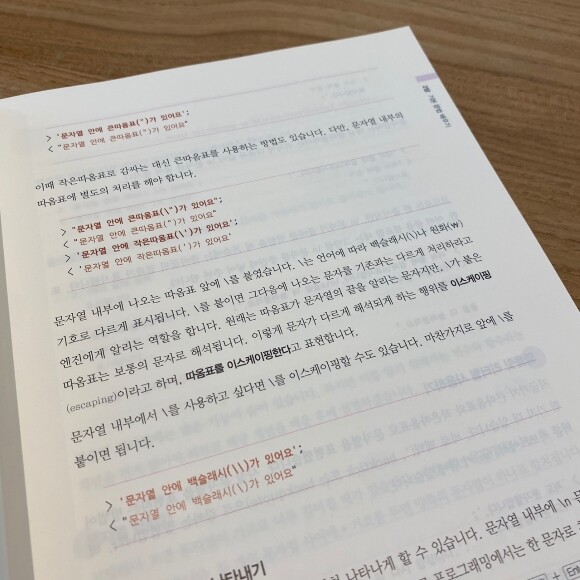 > '문자열 안에 큰따옴표(")가 있어요';
< "문자열 안에 큰따옴표(")가 있어요"
이때 작은따옴표로 감싸는 대신 큰따옴표를 사용하는 방법도 있습니다. 다만, 문자열 내부의
따옴표에 별도의 처리를 해야 합니다.
> "문자열 안에 큰따옴표(\")가 있어요";
< "문자열 안에 큰따옴표(")가 있어요"
> '문자열 안에 작은따옴표(\')가 있어요';
< '문자열 안에 작은따옴표(')가 있어요'
문자열 내부에 나오는 따옴표 앞에 \를 붙였습니다. \는 언어에 따라 백슬래시(\)나 원화(₩)
기호로 다르게 표시됩니다. \를 붙이면 그다음에 나오는 문자를 기존과는 다르게 처리하라고
엔진에게 알리는 역할을 합니다. 원래는 따옴표가 문자열의 끝을 알리는 문자지만, \가 붙은
따옴표는 보통의 문자로 해석됩니다. 이렇게 문자가 다르게 해석되게 하는 행위를 이스케이핑
(escaping)이라고 하며, 따옴표를 이스케이핑한다고 표현합니다.
문자열 내부에서 \를 사용하고 싶다면 \를 이스케이핑할 수도 있습니다. 마찬가지로 앞에 \를
붙이면 됩니다.
> '문자열 안에 백슬래시(\\)가 있어요';
< "문자열 안에 백슬래시(\)가 있어요"
나타내기
나타나게 할 수 있습니다. 문자열 내부에 \n 문
프로그래밍에서는 한 문자로